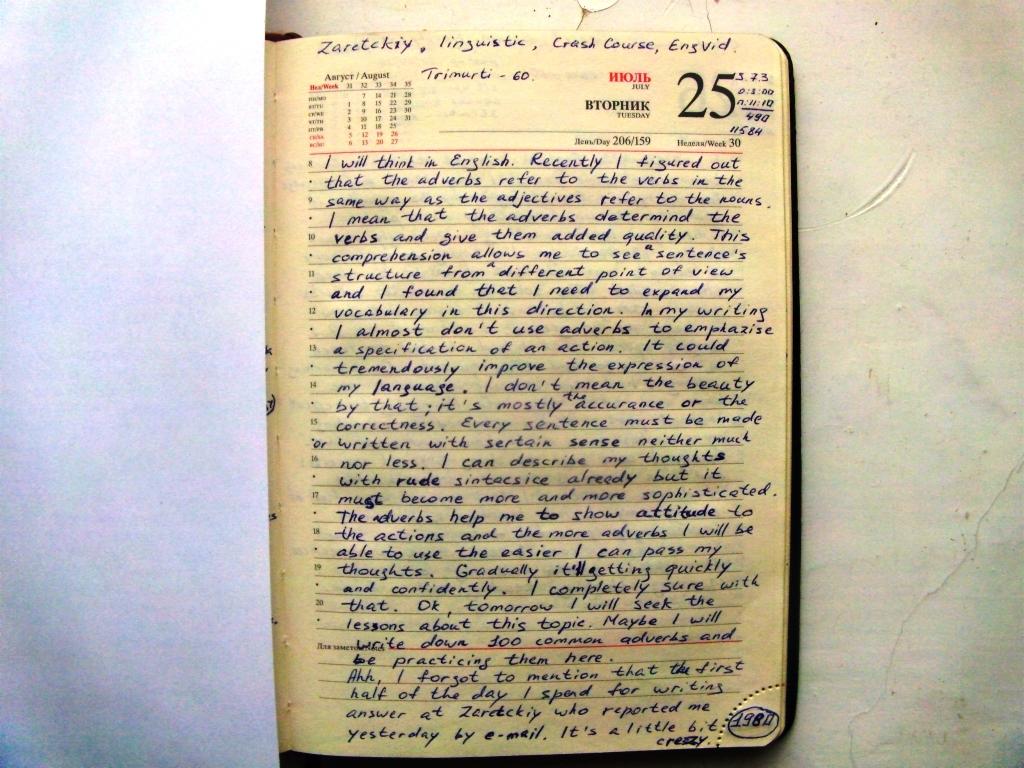 Zaretckiy, linguistic, Crash Course, EngVid.
Trimurti - 60.
Август / August
Нед/Week 31 32 33 34 35
ПН/MO 7 14 21 28
ВТ/TU 1 8 15 22 29
СР/WE 2 9 16 23 30
ЧТ/TH 3 10 17 24 31
ПТ/FR 4 11 18 25
СБ/SA 5 12 19 26
ВС/SU 6 13 20 27
ИЮЛЬ
JULY
ВТОРНИК
TUESDAY
25
3.7.3
490
11584
День/Day 206/159 Неделя/Week 30
8 I will think in English. Recently I figured out
that the adverbs refer to the verbs in the
9 same way as the adjectives refer to the nouns.
I mean that the adverbs determind the
10 verbs and give them added quality. This
comprehension allows me to see a sentence's
11 structure from a different point of view
and I found that I need to expand my
12 vocabulary in this direction. In my writing
I almost don't use adverbs to emphazise
13 a specification of an action. It could
tremendously improve the expression of
14 my language. I don't mean the beauty
by that; it's mostly the accurance or the
15 correctness. Every sentence must be made
or written with sertain sense neither much
16 nor less. I can describe my thoughts
with rude sintacsice already but it
17 must become more and more sophisticated.
The adverbs help me to show attitude to
18 the actions and the more adverbs I will be
able to use the easier I can pass my
19 thoughts. Gradually it'll getting quickly
and confidently. I completely sure with
20 that. Ok, tomorrow I will seek the
lessons about this topic. Maybe I will
Для заметок write down 100 common adverbs and
be practicing them here.
Ahh, I forgot to mention that the first
half of the day I spend for writing
answer at Zaretckiy who reported me
yesterday by e-mail. It's a little bit
creezy.